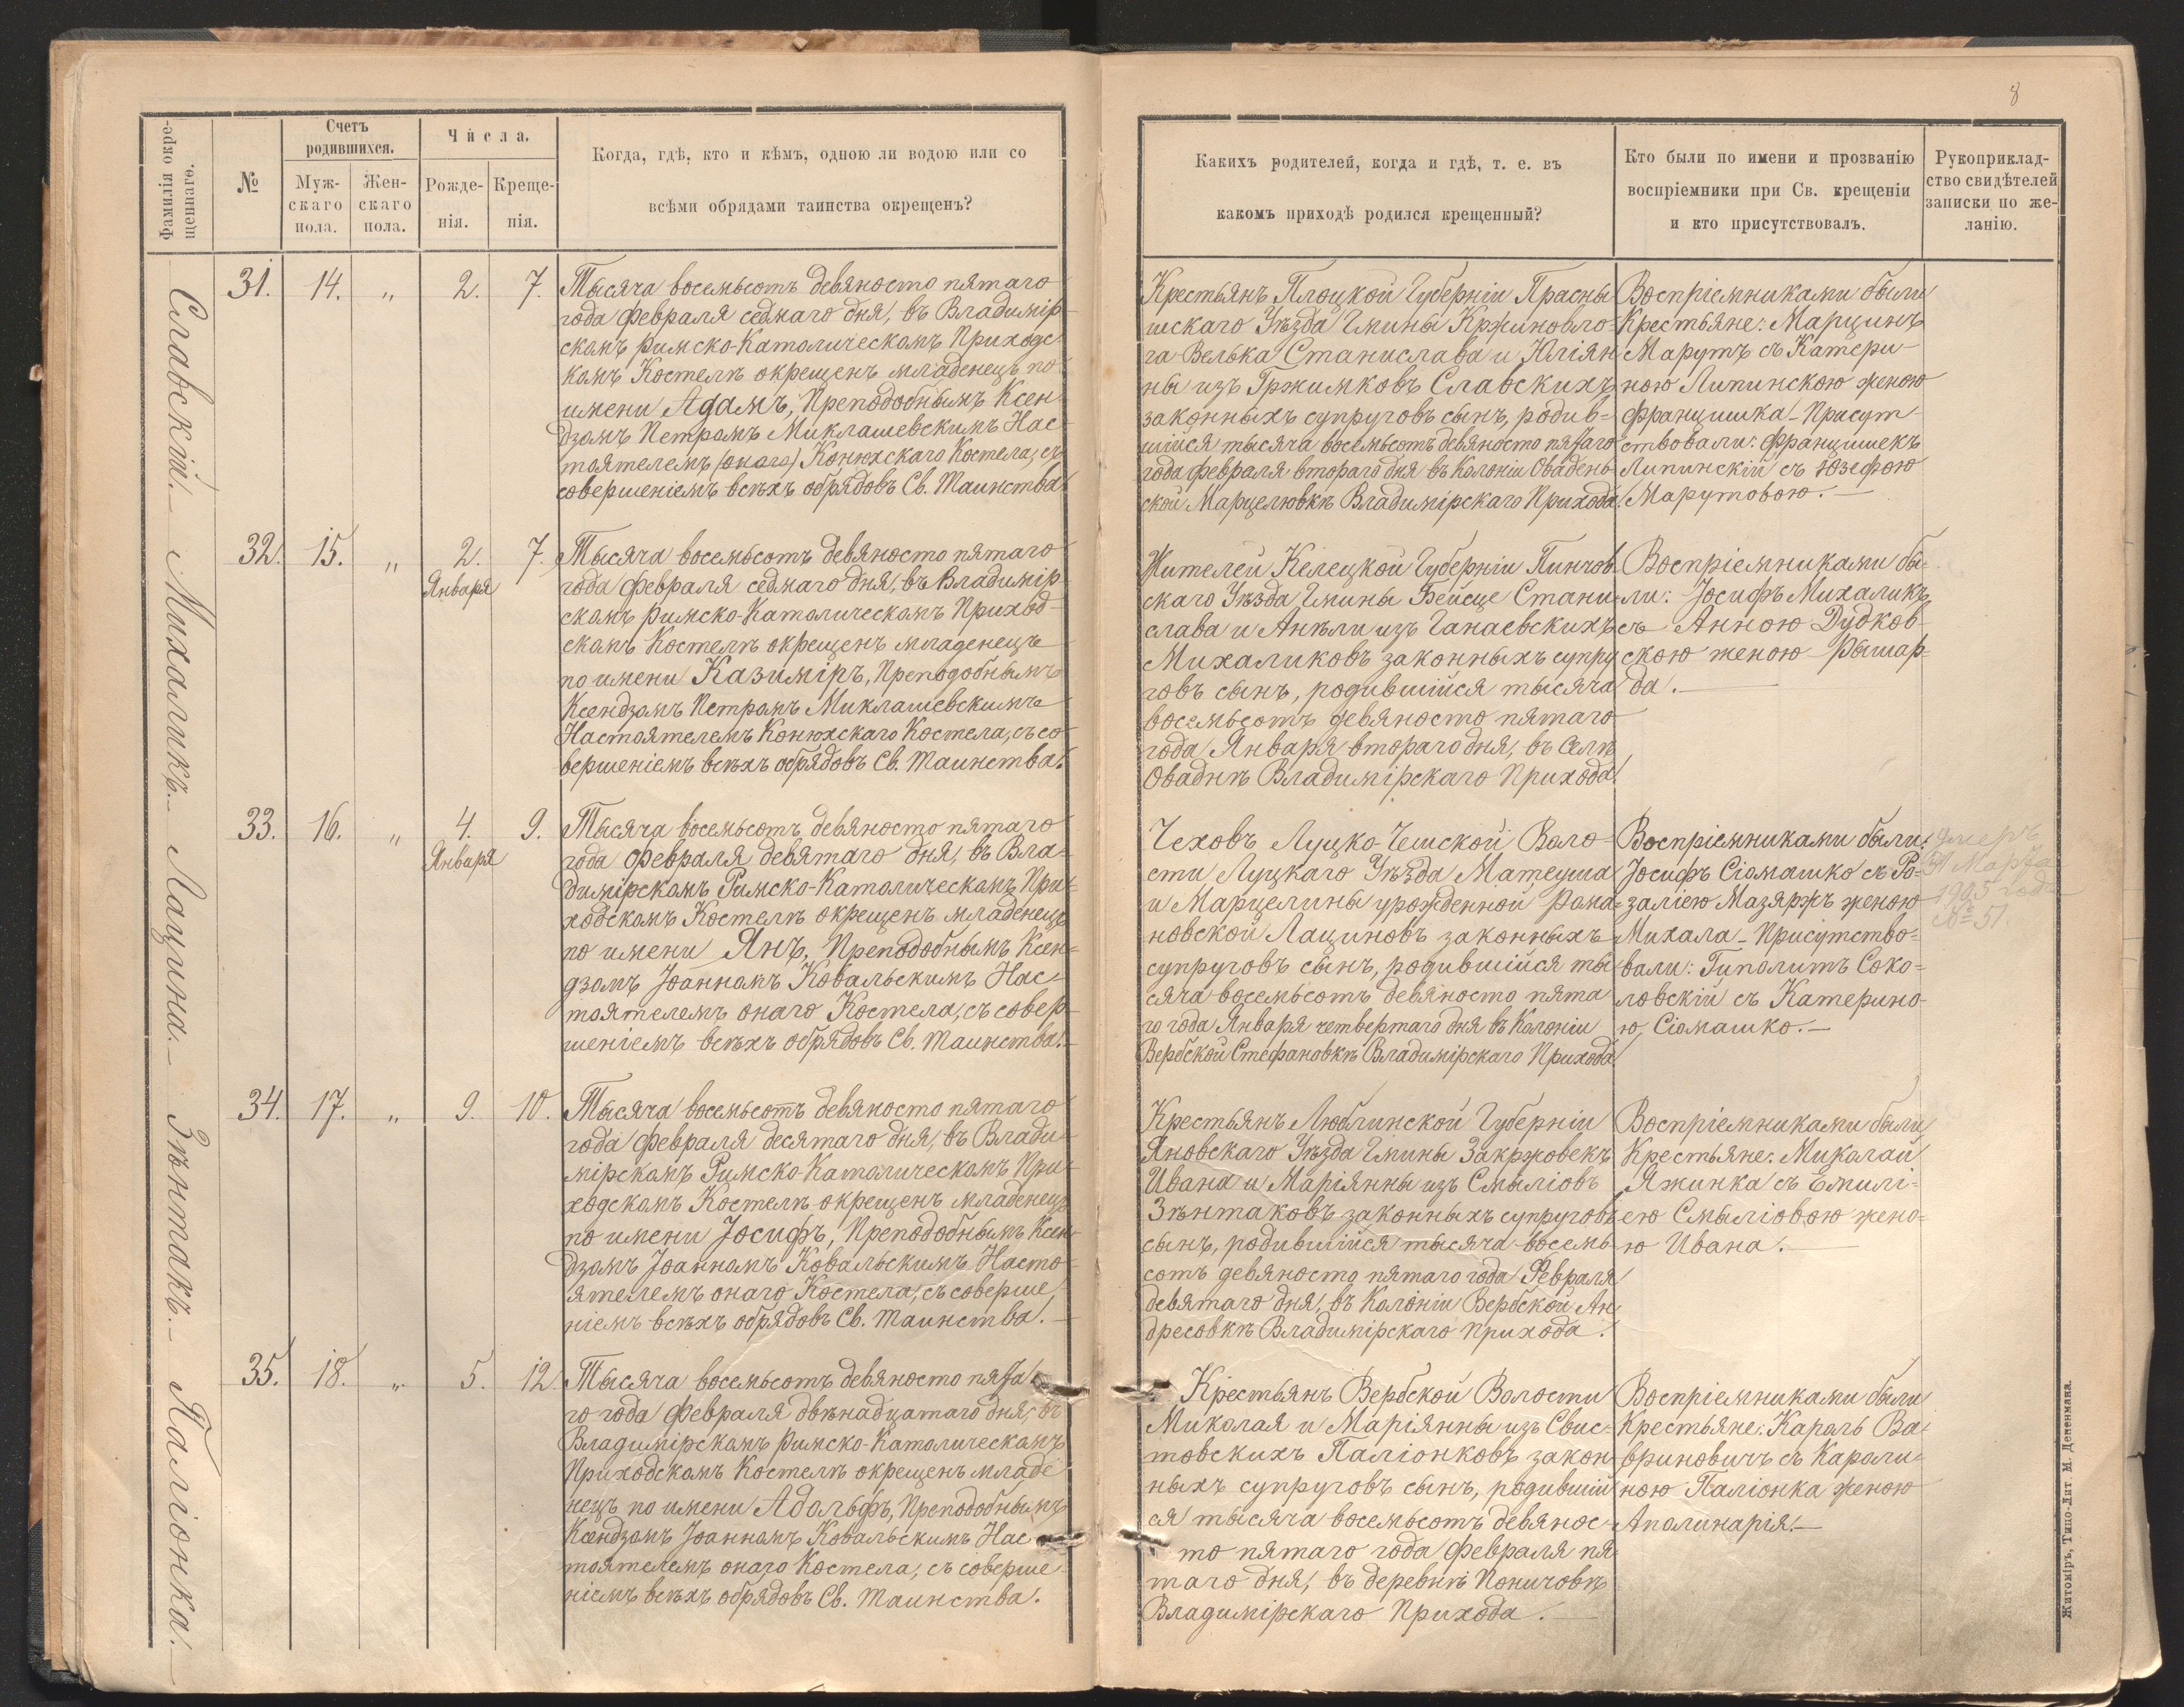 8
Фамилія окре-
щеннаго.
№
Счетъ
родившихся.
Муж-
скаго
пола.
Жен-
скаго
пола.
Числа.
Рожде-
нія.
Креще-
нія.
Когда, гдѣ, кто и кѣмъ, одною ли водою или со
всѣми обрядами таинства окрещенъ?
Какихъ родителей, когда и гдѣ, т. е. въ
какомъ приходѣ родился крещенный?
Кто были по имени и прозванію
воспріемники при Св. крещеніи
и кто присутствовалъ.
Рукоприклад-
ство свидѣтелей
записки по же-
ланію.
Славскій.— Михаликъ.— Лацина.— Зѣнтакъ.— Паліонка.—
31. 14. „ 2. 7.
Тысяча восемьсотъ девяносто пятаго
года Февраля седмаго дня, въ Владимір-
скомъ Римско-Католическомъ Приходс-
комъ Костелѣ окрещенъ младенецъ по
имени Адамъ, Преподобнымъ Ксен-
дзомъ Петромъ Миклашевскимъ Нас-
тоятелемъ (онаго) Конюхскаго Костела, съ
совершеніемъ всѣхъ обрядовъ Св. Таинства.
Крестьянъ Плоцкой Губерніи Прасны
шскаго Уѣзда Гмины Кржиновло-
га-Велька Станислава и Юліян
ны изъ Гржимковъ Славскихъ
законныхъ супруговъ сынъ, родив-
шійся тысяча восемьсотъ девяносто пятаго
года Февраля втораго дня въ Колоніи Овадень-
ской Марцелювкѣ Владимірскаго Прихода.
Воспріемниками были
Крестьяне: Марцинъ
Марутъ съ Катери-
ною Липинскою женою
Францишка — Присут-
ствовали: Францишекъ
Липинскій съ Юзефою
Марутовою.—
32. 15. „ 2. 7.
Января
Тысяча восемьсотъ девяносто пятаго
года Февраля седмаго дня, въ Владимір
скомъ Римско-Католическомъ Приход-
скомъ Костелѣ окрещенъ младенецъ
по имени Казиміръ, Преподобнымъ
Ксендзомъ Петромъ Миклашевскимъ
Настоятелемъ Конюхскаго Костела, съ со
вершеніемъ всѣхъ обрядовъ Св. Таинства.
Жителей Келецкой Губерніи Пинчов
скаго Уѣзда Гмины Бейсце Стани-
слава и Анѣли изъ Ганаевскихъ
Михаликовъ законныхъ супру
говъ сынъ, родившійся тысяча
восемьсотъ девяносто пятаго
года Января втораго дня, въ Селѣ
Оваднѣ Владимірскаго Прихода.
Воспріемниками бы-
ли: Іосифъ Михаликъ
съ Анною Дудков-
скою женою Рышар-
да.—
33. 16. „ 4. 9.
Января
Тысяча восемьсотъ девяносто пятаго
года Февраля девятаго дня, въ Вла-
димірскомъ Римско-Католическомъ При-
ходскомъ Костелѣ окрещенъ младенецъ
по имени Янъ, Преподобнымъ Ксен-
дзомъ Іоанномъ Ковальскимъ Нас-
тоятелемъ онаго Костела, съ совер-
шеніемъ всѣхъ обрядовъ Св. Таинства.—
Чеховъ Луцко-Чешской Воло-
сти Луцкаго Уѣзда Матеуша
и Марцелины урожденной Рома-
новской Лациновъ законныхъ
супруговъ сынъ, родившійся ты
сяча восемьсотъ девяносто пята
го года Января четвертаго дня въ Колоніи
Вербской Стефановкѣ Владимірскаго Прихода
Воспріемниками были:
Іосифъ Сіомашко съ Ро-
заліею Мазяржъ женою
Михала — Присутство-
вали: Гиполитъ Соко-
ловскій съ Катерино-
ю, Сіомашко.—
умеръ
31 Марта
1905 года
№ 51.
34. 17. „ 9. 10.
Тысяча восемьсотъ девяносто пятаго
года Февраля десятаго дня, въ Влади-
мірскомъ Римско-Католическомъ При-
ходскомъ Костелѣ окрещенъ младенецъ
по имени Іосифъ, Преподобнымъ Ксен-
дзомъ Іоанномъ Ковальскимъ Насто-
ятелемъ онаго Костела, съ соверше-
ніемъ всѣхъ обрядовъ Св. Таинства.—
Крестьянъ Люблинской Губерніи
Яновскаго Уѣзда Гмины Закржовекъ
Ивана и Маріянны изъ Смыліовъ
Зѣнтаковъ законныхъ супруговъ
сынъ, родившійся тысяча восемь-
сотъ девяносто пятаго года Февраля
девятаго дня, въ Колоніи Вербской Ан
дресовкѣ Владимірскаго Прихода.
Воспріемниками были
Крестьяне: Миколай
Яжинка съ Емилі-
ею Смыліовою жено-
ю Ивана.—
35. 18. „ 5. 12.
Тысяча восемьсотъ девяносто пята-
го года Февраля двѣнадцатаго дня, въ
Владимірскомъ Римско-Католическомъ
Приходскомъ Костелѣ окрещенъ младе
нецъ по имени Адольфъ, Преподобнымъ
Ксендзомъ Іоанномъ Ковальскимъ Нас
тоятелемъ онаго Костела, съ соверше
ніемъ всѣхъ обрядовъ Св. Таинства.
Крестьянъ Вербской Волости
Миколая и Маріянны изъ Свис-
товскихъ Паліонковъ закон-
ныхъ супруговъ сынъ, родившій
ся тысяча восемьсотъ девянос-
то пятаго года Февраля пя
таго дня, въ деревнѣ Поничовѣ
Владимірскаго Прихода.—
Воспріемниками были
Крестьяне: Кароль Ва-
вриновичъ съ Кароли-
ною Паліонка женою
Аполинарія.—
Житоміръ, Типо-Лит М. Дененмана.